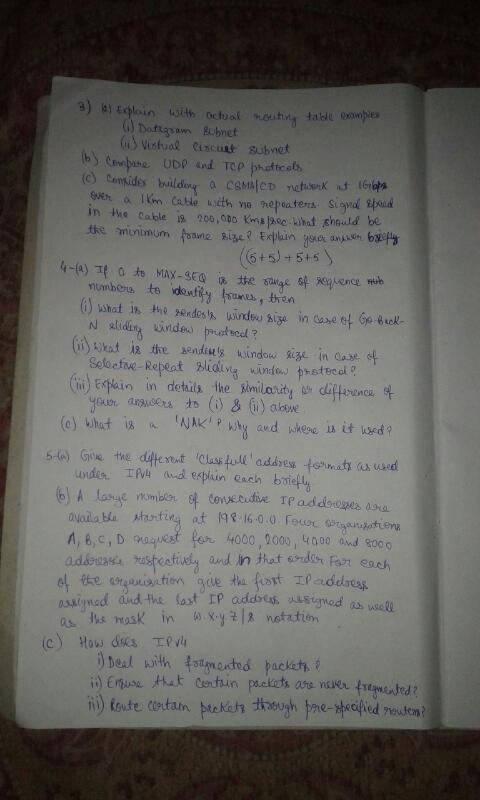 3) (a) Explain with actual routing table examples
(i) Datagram Subnet
(ii) Virtual Circuit Subnet
(b) Compare UDP and TCP protocols
(c) Consider building a CSMA/CD network at 1Gbps
over a 1Km cable with no repeaters. Signal speed
in the cable is 200,000 Kms/sec. What should be
the minimum frame size? Explain your answer briefly
((5+5)+5+5)
4-(a) If 0 to MAX-SEQ is the range of sequence
numbers to identify frames, then
(i) What is the sender's window size in case of Go-Back-
N sliding window protocol?
(ii) What is the sender's window size in case of
Selective-Repeat sliding window protocol?
(iii) Explain in details the similarity or difference of
your answers to (i) & (ii) above.
(c) What is a 'NAK'? Why and where is it used?
5-(a) Give the different 'classfull' address formats as used
under IPv4 and explain each briefly.
(b) A large number of consecutive IP addresses are
available starting at 198.16.0.0. Four organisations
A, B, C, D request for 4000, 2000, 4000 and 8000
addresses respectively and in that order. For each
of the organisation give the first IP address
assigned and the last IP address assigned as well
as the mask in w.x.y.z/s notation
(c) How does IPv4
i) Deal with fragmented packets?
ii) Ensure that certain packets are never fragmented?
iii) Route certain packets through pre-specified routers?